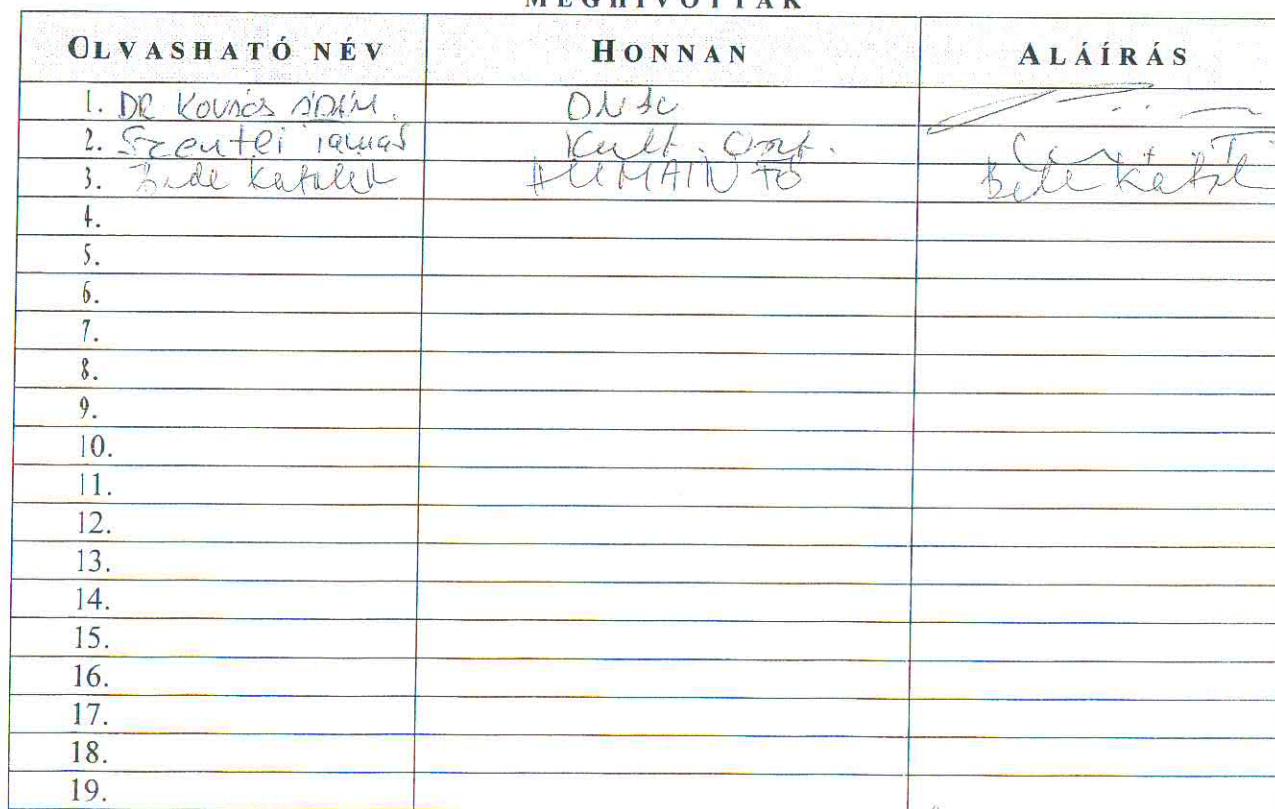 MEGHÍVOTTAK
OLVASHATÓ NÉV HONNAN ALÁÍRÁS
1. DR KOVÁCS ÁDÁM.
2. Szentei Tamás Kult. Cont.
3. Bede Katalin HUMAIN FŐ Bede Katal
4.
5.
6.
7.
8.
9.
10.
11.
12.
13.
14.
15.
16.
17.
18.
19.